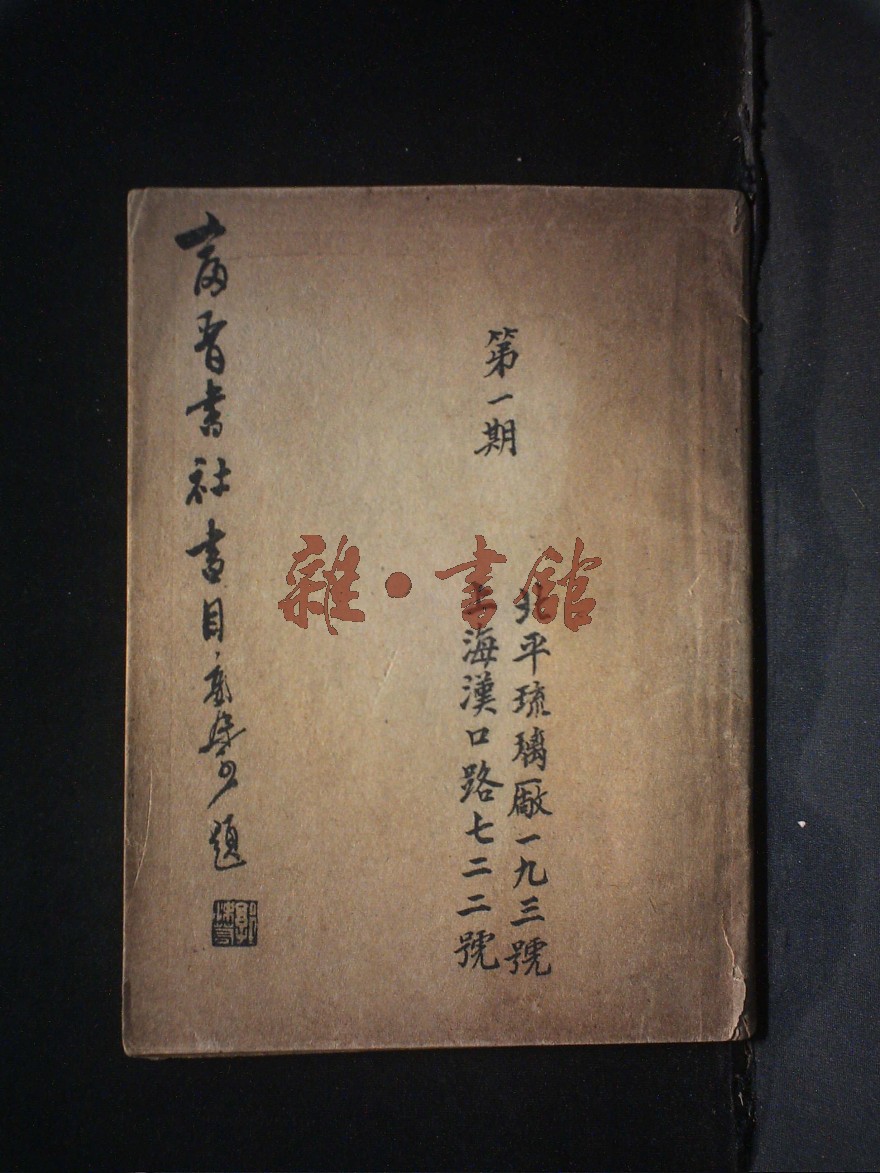 第一期
北平琉璃厰一九三號
上海漢口路七二二號
富晉書社書目
題
雜·書館